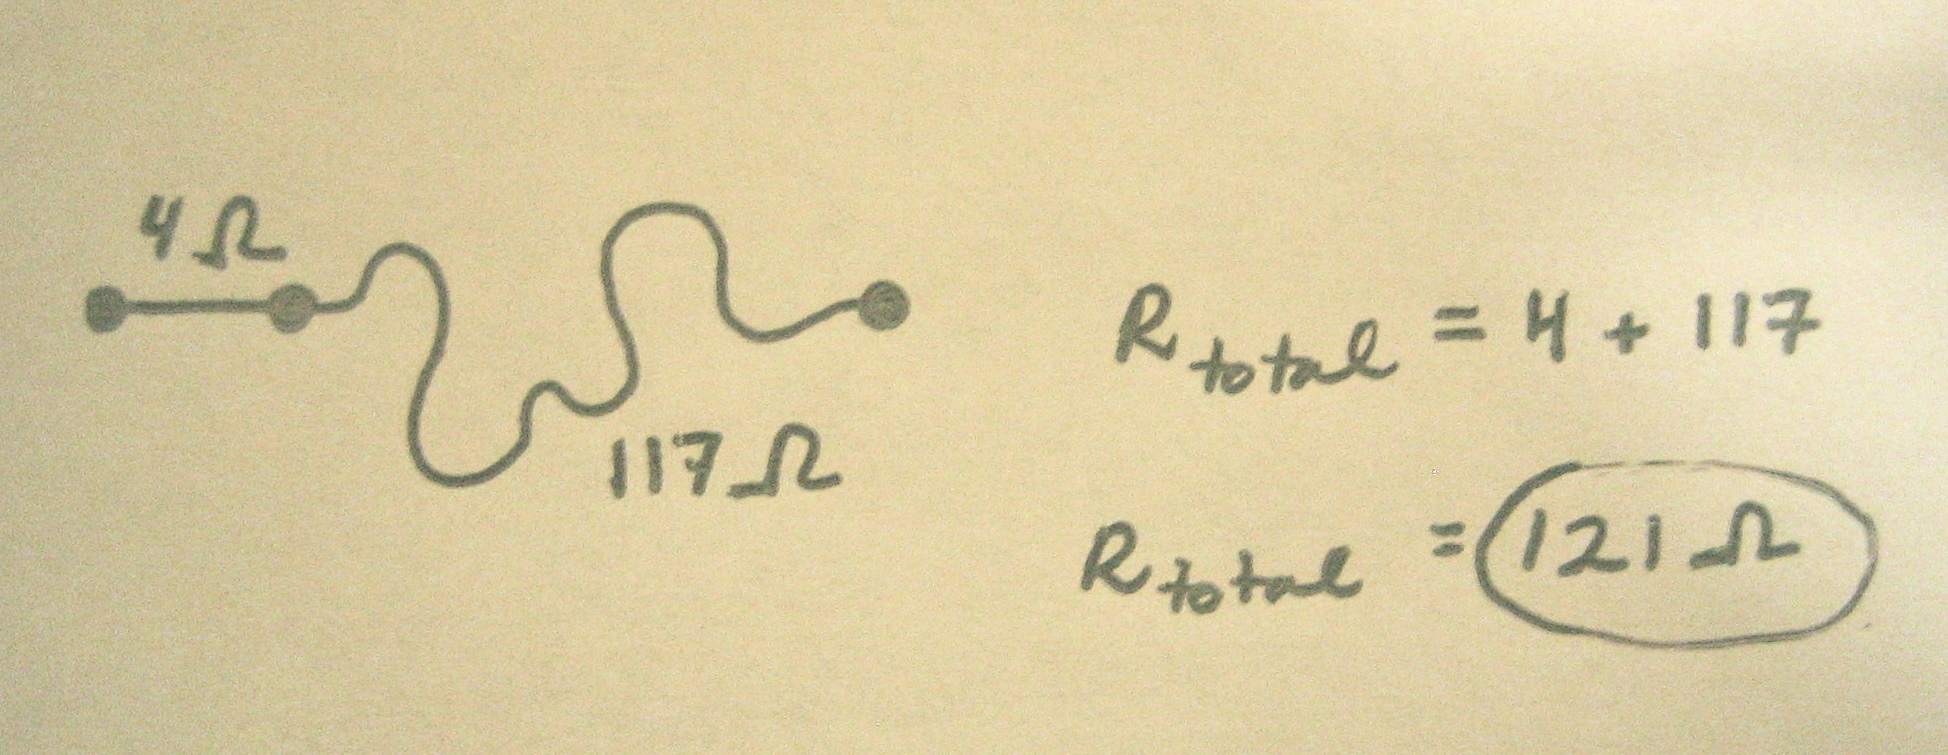 4 Ω
117 Ω
R total = 4 + 117
R total = 121 Ω